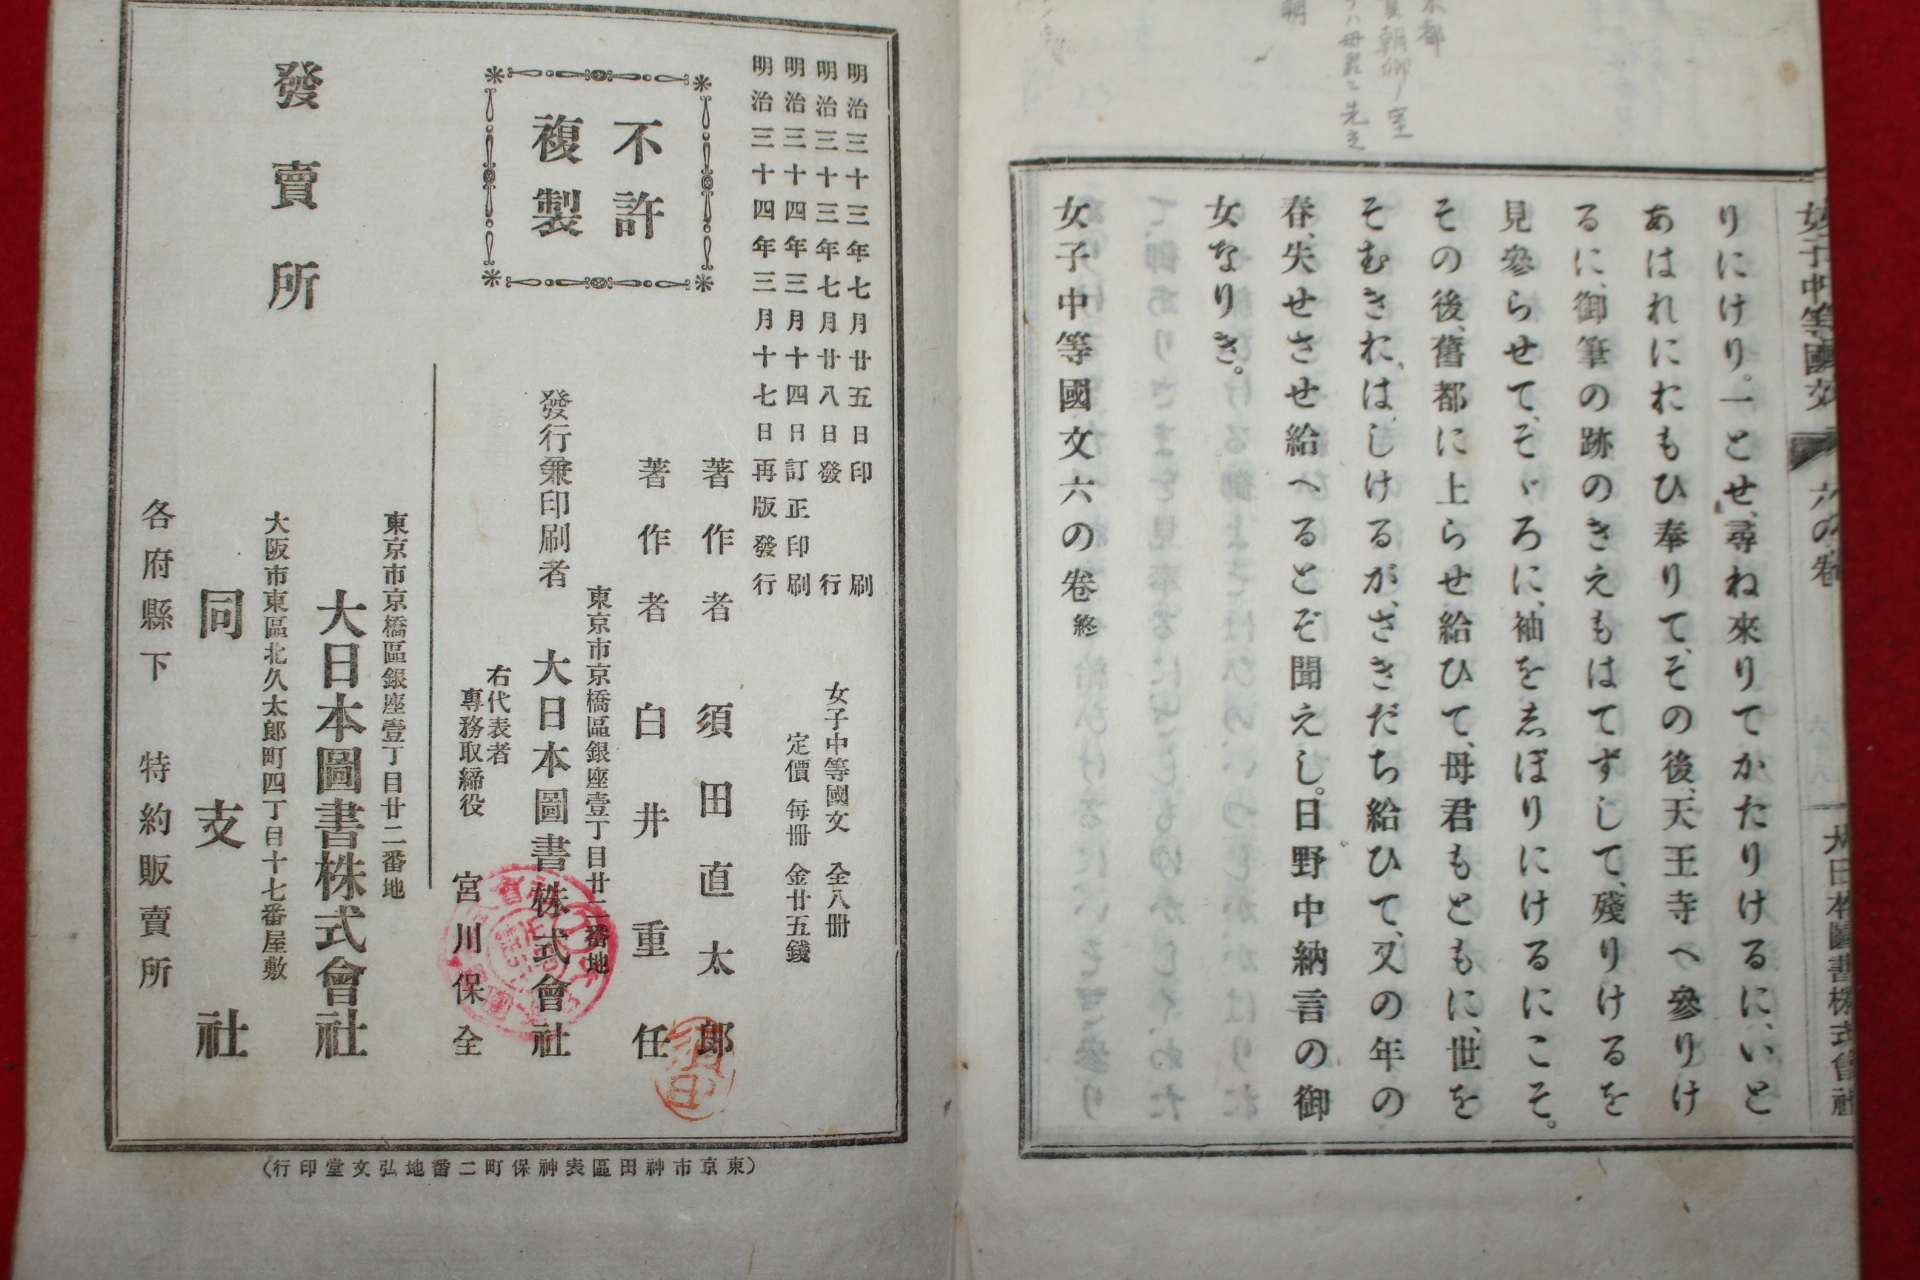 女子中等國文
六の卷
大日本圖書株式會社
りにけり。一とせ、尋ね來りてかたりけるに、いと
あはれにおもひ奉りて、その後、天王寺へ參りけ
るに、御筆の跡のきえもはてずして、殘りけるを
見參らせて、そゞろに、袖をゑぼりにけるにこそ。
その後、舊都に上らせ給ひて、母君もともに、世を
そむきおはしけるが、さきだち給ひて、又の年の
春、失せさせ給へるとぞ聞えし。日野中納言の御
女なりき。
女子中等國文六の卷終
明治三十三年七月廿五日印刷
明治三十三年七月廿八日發行
明治三十四年三月十四日訂正印刷
明治三十四年三月十七日再版發行
不許
複製
女子中等國文 全八冊
定價 每冊 金廿五錢
著作者 須田直太郎
著作者 白井重任
東京市京橋區銀座壹丁目廿二番地
發行兼印刷者 大日本圖書株式會社
右代表者
專務取締役 宮川保全
東京市京橋區銀座壹丁目廿二番地
發賣所 大日本圖書株式會社
大阪市東區北久太郎町四丁目十七番屋敷
同支社
各府縣下 特約販賣所
(東京市神田區表神保町二番地弘文堂印行)